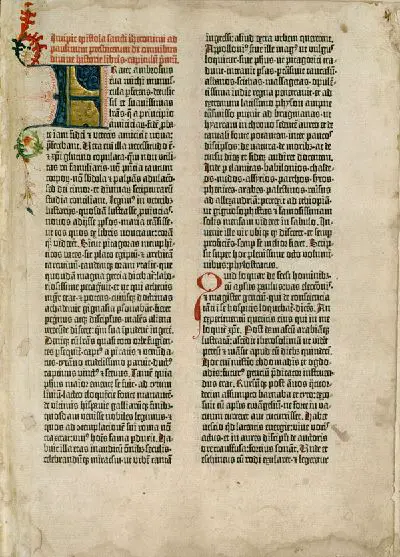 Incipit epistola sancti iheronimi ad
paulinum presbiterum de omnibus
divine historie libris·capitulũ p̃mũ.
Frater ambrosius
tua michi munus-
cula pferens·detulit
sil et suauissimas
lr̃as· q̃ a principio
amiciciaꝝ· fidẽ pba-
te iam fidei et veteris amicicie noua
pferebant. Vera eni illa necessitudo ẽ·
et xp̃i glutino copulata· qm̃ non vtili-
tas rei familiaris· nõ pñcia tantum
corpoꝝ· nõ sbdola et palpãs adulaco·
sed dei timor· et diuinaꝝ scripturarũ
studia conciliant. Legim⁹ in veterib⁹
historijs· quosdã lustrasse puincias·
nouos adijsse pp̃los· maria trãsisse·
vt eos quos ex libris nouerant: corã qꝫ
viderẽt. Sicut pitagoras memphi-
ticos vates· sic plato egiptũ· et architã
tarentinũ· eandemqꝫ oram ytalie· que
quondã magna grecia dicebat̃: labo-
riosissime pagrauit· et ut qui athenis
mgr̃ erat· et potens· cuiusqꝫ doctrinas
achademie gignasia psonabãt: fieret
peginus atqꝫ discipulus· malẽs aliena
verecunde discere: qm̃ sua impudẽter ingerere.
Deniqꝫ cũ lr̃as quasi toto orbe fugien-
tes psequit̃· capt⁹ a piratis et venunda-
tus· tyrãno crudelissimo paruit· duct⁹
captiuus vinct⁹ et seruus. Tamẽ quia
ph̃us maior emente se fuit· ad tytum
liuiũ· lacteo eloquẽcie fonte manantẽ·
de vltimis hispanie galliarũqꝫ finib⁹
quosdam venisse nobiles legimus· et
quos ad cõtemplaconẽ sui roma non
traxerat: vni⁹ hoĩs fama pduxit. Ha-
buit illa etas inauditũ õnibus seculis·
celebrandũqꝫ miraculũ· ut urbẽ tantã
ingressi: aliud extra vrbem quererent.
Apolloni⁹ siue ille mag⁹ ut vulgus
loquitur· siue ph̃us· ut pitagorici tra-
dunt· intrauit psas· ptrãsiuit caucasũ·
albanos· scithas· massagetas· opulẽ-
tissima indie regna penetrauit· et ad
extremum latissimo physon ampne
trãsmisso puenit ad bragmanas· ut
hyarcam in throno sedentẽ aureo et de
tantali fonte potantem· inter paucos
discipulos· de natura· de moribus ac de
cursu dierũ et siderũ audiret docentem.
Inde p elamitas· babilonios· chalde-
os· medos· assirios· parthos· syros·
phenices· arabes· palestinos· reuersus
ad alexandriã· perrexit ad ethiopiam·
ut gignosophistas et famosissimam
solis mensam videret in sabulo. Inuenit
ille vir ubiqꝫ qd̃ disceret· et semp
proficiẽs· semper se melior fieret. Scrip-
sit super hoc plenissime octo volumi-
nibus: phylostratus.
Quid loquar de seculi hominib⁹:
cũ apostol⁹ paulus· vas electõis·
et magister gentiũ· qui de consciencia
tanti in se hospitis loquebat̃· dicẽs· An
experimentum queritis eius qui in me
loquit̃ xp̃c. Post damascũ arabiãqꝫ
lustratã: ascẽdit iherosolimã ut videret
petrũ et mãsit apud eũ diebus quindeci.
Hoc enim misterio ebdomadis et ogdo-
adis: futur⁹ genciũ pdicator instruen-
dus erat. Rursũqꝫ post ãnos quatuor-
decim assumpto barnaba et tyto: expo-
suit cũ apostolis euangeliũ· ne forte in va-
cuum curreret aut cucurrisset. Habet
nescio qd̃ latentis energie· viue vocis
actus· et in aures discipli de auctoris
ore transfusa: forcius sonat. Unde et
eschineus cũ rodi exularet· et legeretur